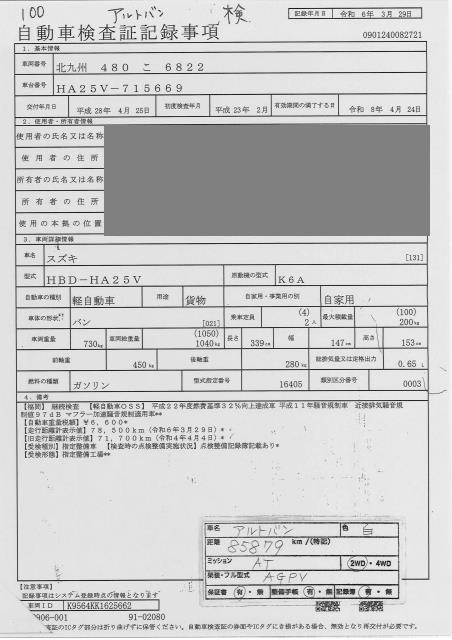 100 アルトバン 検
記録年月日 令和 6年 3月 29日
自動車検査証記録事項 0901240082721
1. 基本情報
車両番号 北九州 480 こ 6822
車台番号 HA25V-715669
交付年月日 平成 28年 4月 25日 初度検査年月 平成 23年 2月 有効期間の満了する日 令和 8年 4月 24日
2. 使用者・所有者情報
使用者の氏名又は名称
使用者の住所
所有者の氏名又は名称
所有者の住所
使用の本拠の位置
3. 車両詳細情報
車名 スズキ [131]
型式 HBD-HA25V 原動機の型式 K6A
自動車の種別 軽自動車 用途 貨物 自家用・事業用の別 自家用
車体の形状 バン [021] 乗車定員 (4) 2人 最大積載量 (100) 200kg
車両重量 730kg 車両総重量 (1050) 1040kg 長さ 339cm 幅 147cm 高さ 153cm
前軸重 450kg 後軸重 280kg 総排気量又は定格出力 0.65L
燃料の種類 ガソリン 型式指定番号 16405 類別区分番号 0003
4. 備考
【福岡】 継続検査 【軽自動車OSS】 平成22年度燃費基準32%向上達成車 平成11年騒音規制車 近接排気騒音規
制値97dB マフラー加速騒音規制適用車**
【自動車重量税額】¥6,600*
【走行距離計表示値】78,500km（令和6年3月29日）*
【旧走行距離計表示値】71,700km（令和4年4月4日）*
【受検種別】指定整備車 【検査時の点検整備実施状況】点検整備記録簿記載あり*
【受検形態】指定整備工場**
車名 アルトバン 色 白
距離 85879 km/(特記)
ミッション AT 2WD・4WD
架装・フル型式 AGPV
保証書 有・無 整備手帳 有・無 記録簿 有・無
【注意事項】
記載事項はシステム登録時点の情報となります
車両ID K9564KK1625662
906-001 91-02080
のICタグ部分は折り曲げずに保管ください。自動車検査証の券面やICタグに き損がある場合、無効となり再交付が必要です。